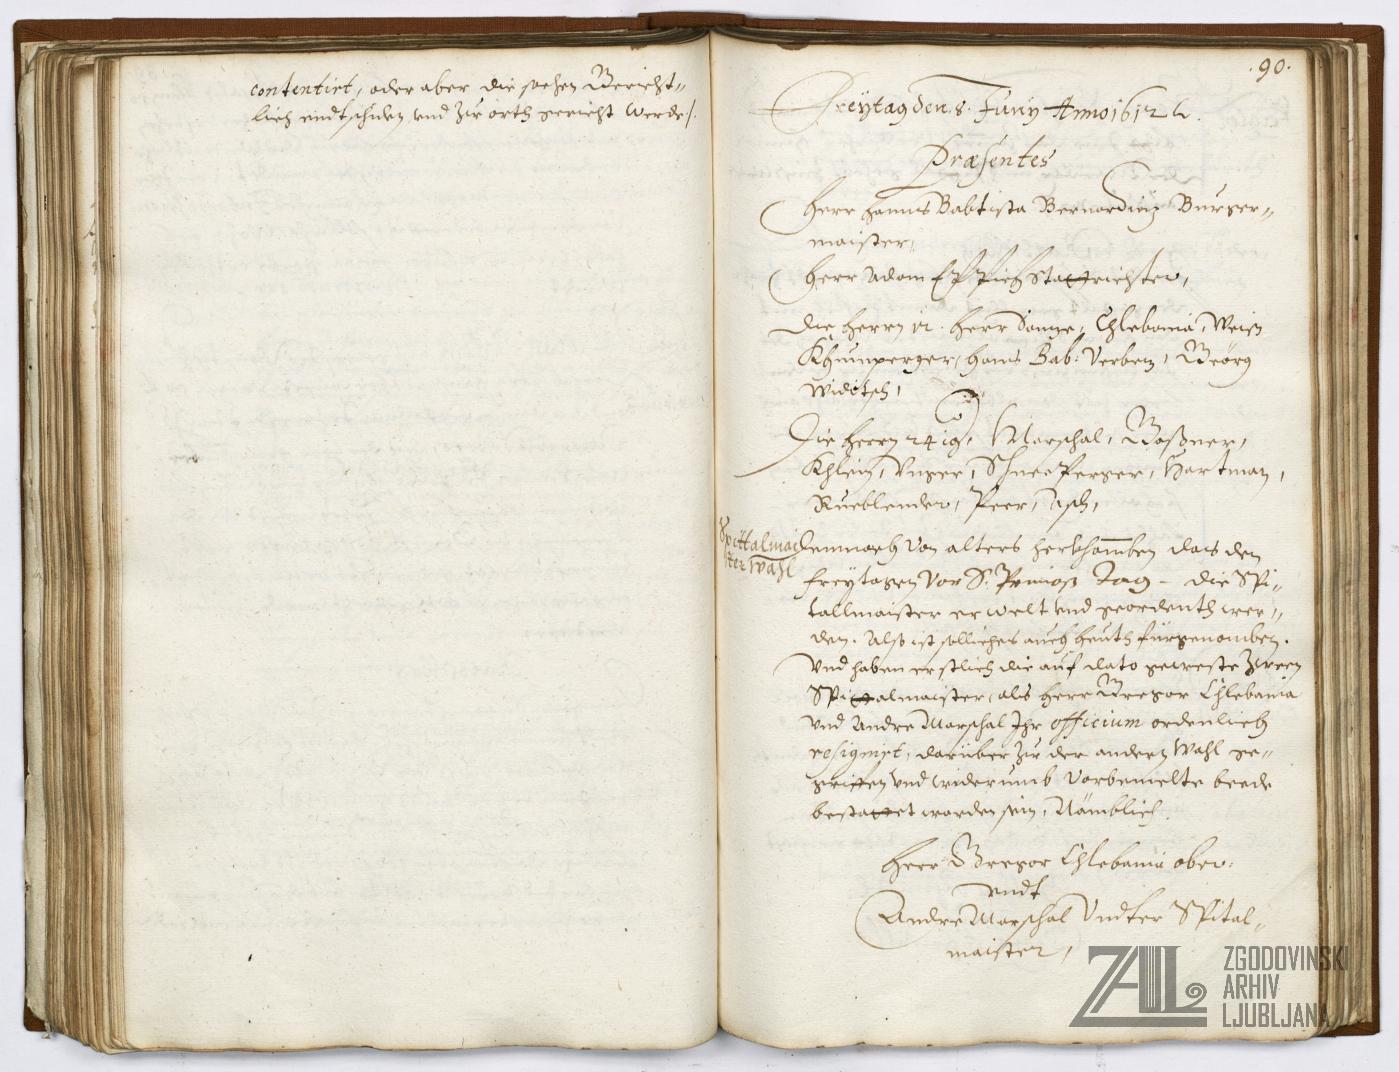 contentirt, oder aber die sachen Gericht-
lich endtschiden und zur orth gericht werde/.
.90.
Freytag den 8. Juny Anno 1612
Præsentes
Herr Hanns Babtista Bernardiniz Burger-
maister,
Herr Adam Eppich Stattrichter,
Die herrn 12. Herr Sonze, Chlebania, Weiß
Khumperger, Hanns Bab: Verbez, Georg
Widitsch,
Die herrn 24ig, Marschal, Goßner,
Khlein, Unger, Schneeperger, Hartman,
Rueblender, Peer, Asch,
Spittalmai
ster Wahl
Demnach von alters herkhomben das den
freytagen vor S: Primoß Tag die Spi-
tallmaister erwelt und geordenth wer-
den. Also ist solliches auch heuth fürgenomben.
Und haben erstlich die auf dato geweste zween
Spittalmaister, als herr Gregor Chlebania
und Andre Marschal Ihr officium ordenlich
resignirt, darüber zur der andern Wahl ge-
griffen und widerumb vorbemelte beede
bestattet worden sein, Nämblich
Herr Gregor Chlebania ober:
undt
Andre Marschal Undter Spital-
maister,
ZAL ZGODOVINSKI
ARHIV
LJUBLJANA